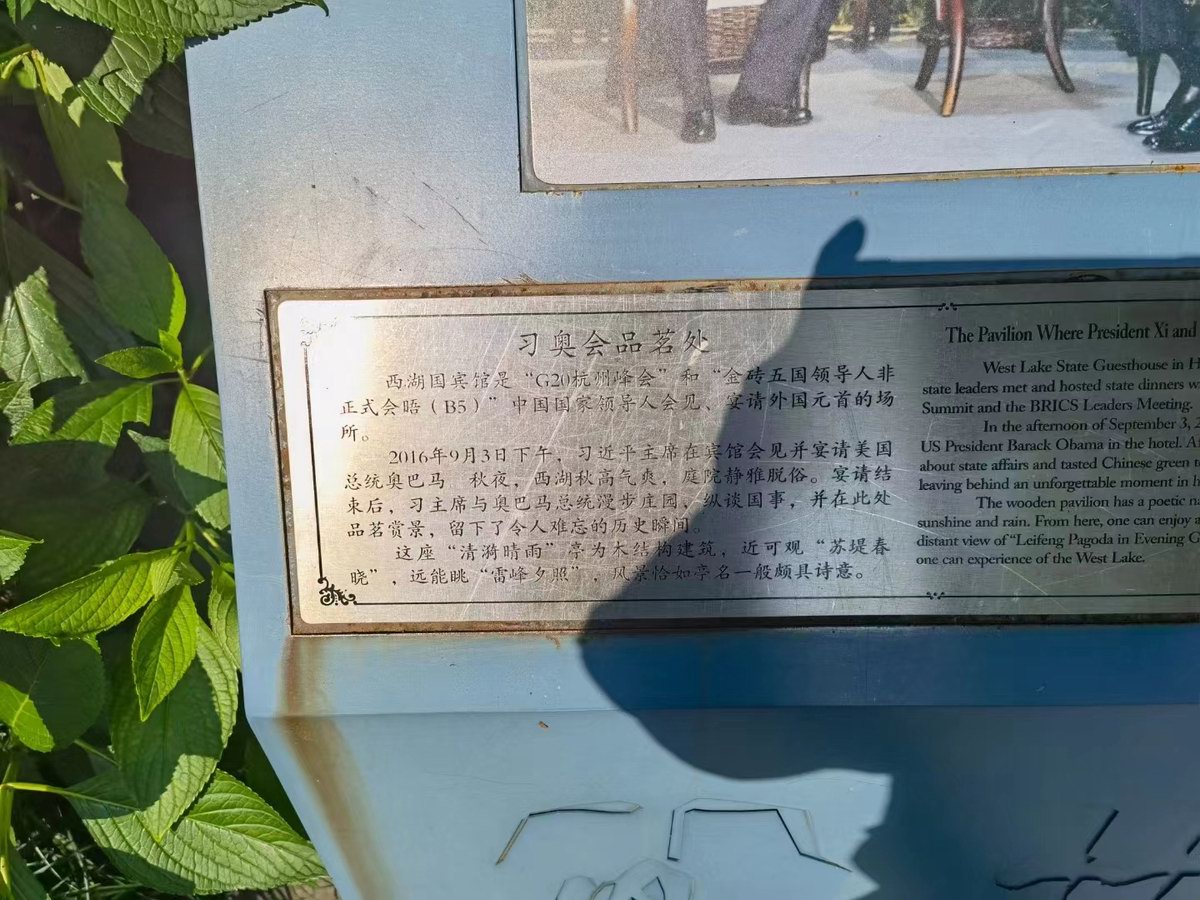 习奥会品茗处
西湖国宾馆是“G20杭州峰会”和“金砖五国领导人非
正式会晤（B5）”中国国家领导人会见、宴请外国元首的场
所。
2016年9月3日下午，习近平主席在宾馆会见并宴请美国
总统奥巴马。秋夜，西湖秋高气爽，庭院静雅脱俗。宴请结
束后，习主席与奥巴马总统漫步庄园，纵谈国事，并在此处
品茗赏景，留下了令人难忘的历史瞬间。
这座“清漪晴雨”亭为木结构建筑，近可观“苏堤春
晓”，远能眺“雷峰夕照”，风景恰如亭名一般颇具诗意。
The Pavilion Where President Xi and
West Lake State Guesthouse in H
state leaders met and hosted state dinners w
Summit and the BRICS Leaders Meeting.
In the afternoon of September 3, 2
US President Barack Obama in the hotel. A
about state affairs and tasted Chinese green t
leaving behind an unforgettable moment in h
The wooden pavilion has a poetic na
sunshine and rain. From here, one can enjoy a
distant view of "Leifeng Pagoda in Evening G
one can experience of the West Lake.